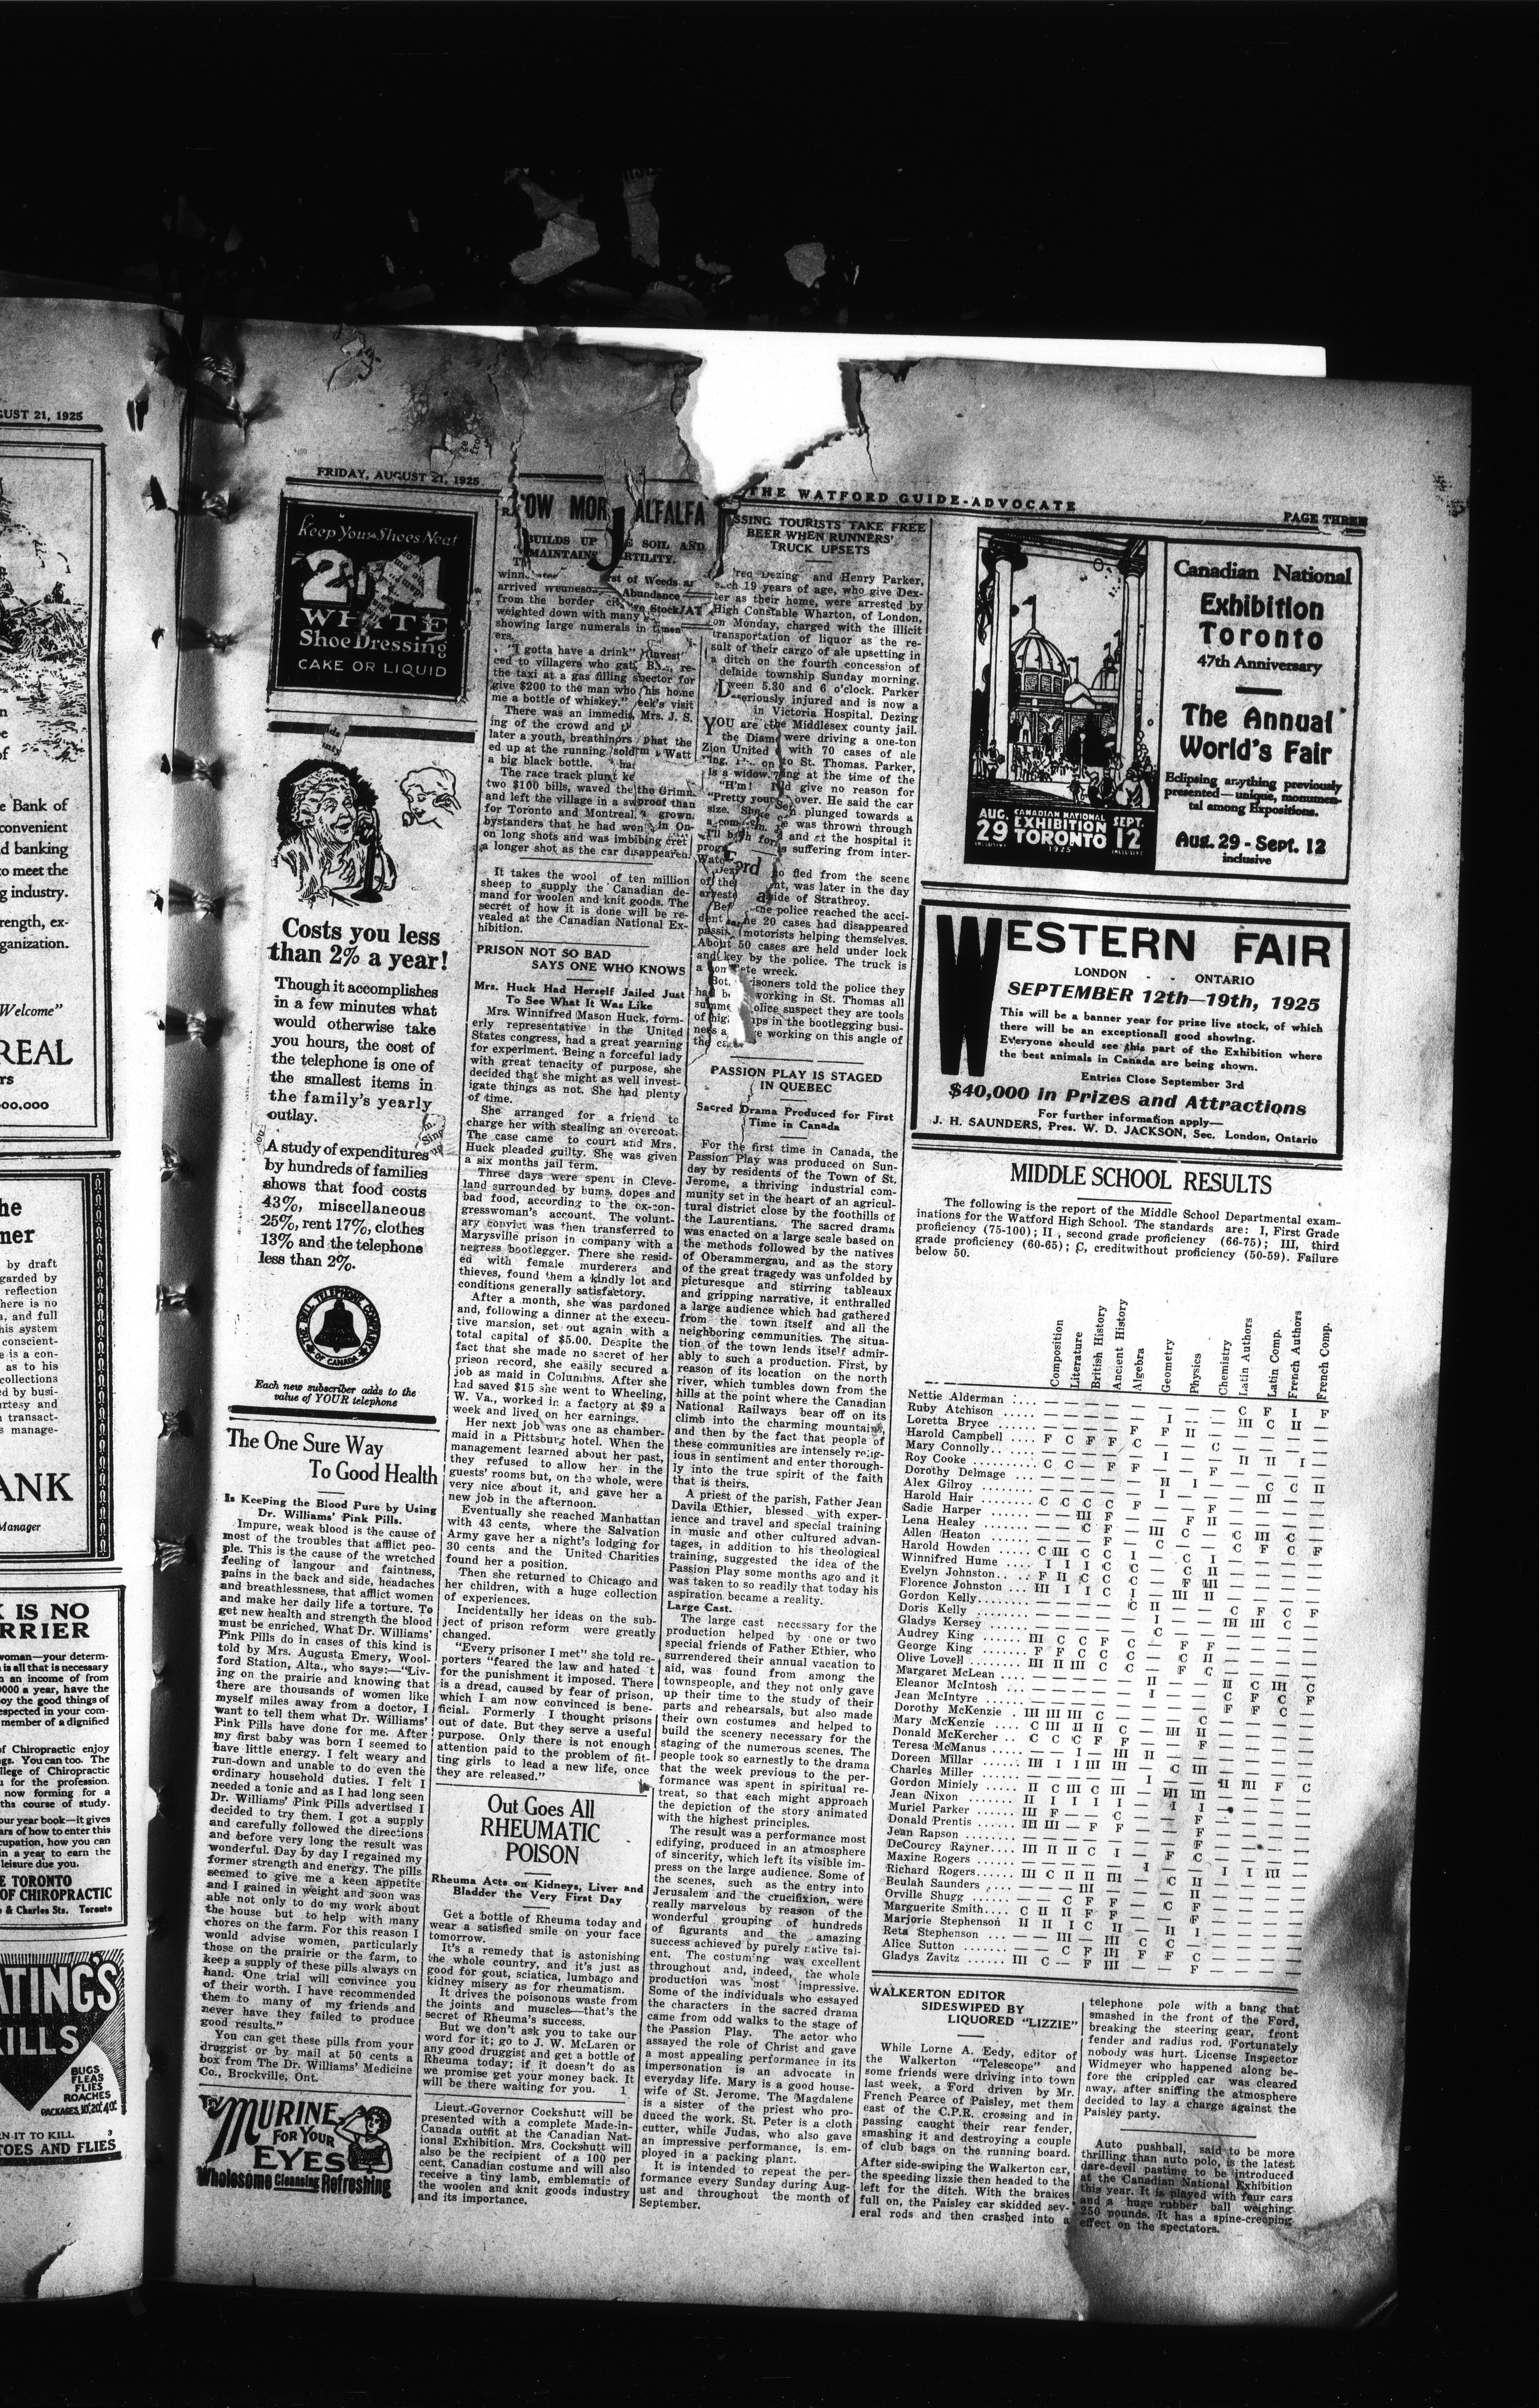 GUST 21, 1925
e Bank of
convenient
d banking
to meet the
g industry.
rength, ex-
ganization.
Welcome"
REAL
rs
00.000
he
mer
by draft
garded by
reflection
here is no
, and full
his system
conscient-
e is a con-
as to his
collections
ed by busi-
rtesy and
transact-
s manage-
ANK
Manager
IS NO
RRIER
woman—your determ-
is all that is necessary
n an income of from
0000 a year, have the
oy the good things of
espected in your com-
member of a dignified
of Chiropractic enjoy
gs. You can too. The
llege of Chiropractic
for the profession.
now forming for a
ths course of study.
our year book—it gives
ars of how to enter this
cupation, how you can
in a year to earn the
leisure due you.
E TORONTO
OF CHIROPRACTIC
& Charles Sts. Toronto
ATING'S
ILLS
BUGS
FLEAS
FLIES
ROACHES
PACKAGES, 10¢ 20¢ 40¢
RN IT TO KILL
TOES AND FLIES
FRIDAY, AUGUST 21, 1925
THE WATFORD GUIDE-ADVOCATE
PAGE THREE
Keep Your Shoes Neat
2 in 1
WHITE
Shoe Dressing
CAKE OR LIQUID
Costs you less
than 2% a year!
Though it accomplishes
in a few minutes what
would otherwise take
you hours, the cost of
the telephone is one of
the smallest items in
the family's yearly
outlay.
A study of expenditures
by hundreds of families
shows that food costs
43%, miscellaneous
25%, rent 17%, clothes
13% and the telephone
less than 2%.
THE BELL TELEPHONE COMPANY
OF CANADA
Each new subscriber adds to the
value of YOUR telephone
The One Sure Way
To Good Health
Is Keeping the Blood Pure by Using
Dr. Williams' Pink Pills.
Impure, weak blood is the cause of
most of the troubles that afflict peo-
ple. This is the cause of the wretched
feeling of langour and faintness,
pains in the back and side, headaches
and breathlessness, that afflict women
and make her daily life a torture. To
get new health and strength the blood
must be enriched. What Dr. Williams'
Pink Pills do in cases of this kind is
told by Mrs. Augusta Emery, Wool-
ford Station, Alta., who says:—"Liv-
ing on the prairie and knowing that
there are thousands of women like
myself miles away from a doctor, I
want to tell them what Dr. Williams'
Pink Pills have done for me. After
my first baby was born I seemed to
have little energy. I felt weary and
run-down and unable to do even the
ordinary household duties. I felt I
needed a tonic and as I had long seen
Dr. Williams' Pink Pills advertised I
decided to try them. I got a supply
and carefully followed the directions
and before very long the result was
wonderful. Day by day I regained my
former strength and energy. The pills
seemed to give me a keen appetite
and I gained in weight and soon was
able not only to do my work about
the house but to help with many
chores on the farm. For this reason I
would advise women, particularly
those on the prairie or the farm, to
keep a supply of these pills always on
hand. One trial will convince you
of their worth. I have recommended
them to many of my friends and
never have they failed to produce
good results."
You can get these pills from your
druggist or by mail at 50 cents a
box from The Dr. Williams' Medicine
Co., Brockville, Ont.
TRY
MURINE
FOR YOUR
EYES
Wholesome Cleansing Refreshing
OW MOR ALFALFA
BUILDS UP SOIL AND
MAINTAINS RTILITY.
winn
arrived Wednes
from the border
weighted down with many
showing large numerals in
ers.
"I gotta have a drink"
ced to villagers who
the taxi at a gas filling
give $200 to the man who
me a bottle of whiskey."
There was an immedi
ing of the crowd and
later a youth,
ed up at the running
a big black bottle.
The race track
two $100 bills, waved the
and left the village in a
for Toronto and Montreal.
bystanders that he had won
on long shots and was imbibing
a longer shot as the car disappeared.
It takes the wool of ten million
sheep to supply the Canadian de-
mand for woolen and knit goods. The
secret of how it is done will be re-
vealed at the Canadian National Ex-
hibition.
PRISON NOT SO BAD
SAYS ONE WHO KNOWS
Mrs. Huck Had Herself Jailed Just
To See What It Was Like
Mrs. Winnifred Mason Huck, form-
erly representative in the United
States congress, had a great yearning
for experiment. Being a forceful lady
with great tenacity of purpose, she
decided that she might as well invest-
igate things as not. She had plenty
of time.
She arranged for a friend to
charge her with stealing an overcoat.
The case came to court and Mrs.
Huck pleaded guilty. She was given
a six months jail term.
Three days were spent in Cleve-
land surrounded by bums, dopes and
bad food, according to the ex-con-
gresswoman's account. The volunt-
ary convict was then transferred to
Marysville prison in company with a
negress bootlegger. There she resid-
ed with female murderers and
thieves, found them a kindly lot and
conditions generally satisfactory.
After a month, she was pardoned
and, following a dinner at the execu-
tive mansion, set out again with a
total capital of $5.00. Despite the
fact that she made no secret of her
prison record, she easily secured a
job as maid in Columbus. After she
had saved $15 she went to Wheeling,
W. Va., worked in a factory at $9 a
week and lived on her earnings.
Her next job was one as chamber-
maid in a Pittsburg hotel. When the
management learned about her past,
they refused to allow her in the
guests' rooms but, on the whole, were
very nice about it, and gave her a
new job in the afternoon.
Eventually she reached Manhattan
with 43 cents, where the Salvation
Army gave her a night's lodging for
30 cents and the United Charities
found her a position.
Then she returned to Chicago and
her children, with a huge collection
of experiences.
Incidentally her ideas on the sub-
ject of prison reform were greatly
changed.
"Every prisoner I met" she told re-
porters "feared the law and hated t
for the punishment it imposed. There
is a dread, caused by fear of prison,
which I am now convinced is bene-
ficial. Formerly I thought prisons
out of date. But they serve a useful
purpose. Only there is not enough
attention paid to the problem of fit-
ting girls to lead a new life, once
they are released."
Out Goes All
RHEUMATIC
POISON
Rheuma Acts on Kidneys, Liver and
Bladder the Very First Day
Get a bottle of Rheuma today and
wear a satisfied smile on your face
tomorrow.
It's a remedy that is astonishing
the whole country, and it's just as
good for gout, sciatica, lumbago and
kidney misery as for rheumatism.
It drives the poisonous waste from
the joints and muscles—that's the
secret of Rheuma's success.
But we don't ask you to take our
word for it; go to J. W. McLaren or
any good druggist and get a bottle of
Rheuma today; if it doesn't do as
we promise get your money back. It
will be there waiting for you. 1
Lieut.-Governor Cockshutt will be
presented with a complete Made-in-
Canada outfit at the Canadian Nat-
ional Exhibition. Mrs. Cockshutt will
also be the recipient of a 100 per
cent. Canadian costume and will also
receive a tiny lamb, emblematic of
the woolen and knit goods industry
and its importance.
SSING TOURISTS TAKE FREE
BEER WHEN RUNNERS'
TRUCK UPSETS
red Dezing and Henry Parker,
ch 19 years of age, who give Dex-
ter as their home, were arrested by
High Constable Wharton, of London,
on Monday, charged with the illicit
transportation of liquor as the re-
sult of their cargo of ale upsetting in
a ditch on the fourth concession of
delaide township Sunday morning.
ween 5.30 and 6 o'clock. Parker
seriously injured and is now a
in Victoria Hospital. Dezing
the Middlesex county jail.
were driving a one-ton
with 70 cases of ale
to St. Thomas. Parker,
ing at the time of the
give no reason for
over. He said the car
plunged towards a
was thrown through
and at the hospital it
suffering from inter-
fled from the scene
nt, was later in the day
side of Strathroy.
the police reached the acci-
dent 20 cases had disappeared
passing motorists helping themselves.
About 50 cases are held under lock
and key by the police. The truck is
a complete wreck.
Bot isoners told the police they
had be working in St. Thomas all
summe olice suspect they are tools
of hig ps in the bootlegging busi-
ness a working on this angle of
the ca
PASSION PLAY IS STAGED
IN QUEBEC
Sacred Drama Produced for First
Time in Canada
For the first time in Canada, the
Passion Play was produced on Sun-
day by residents of the Town of St.
Jerome, a thriving industrial com-
munity set in the heart of an agricul-
tural district close by the foothills of
the Laurentians. The sacred drama
was enacted on a large scale based on
the methods followed by the natives
of Oberammergau, and as the story
of the great tragedy was unfolded by
picturesque and stirring tableaux
and gripping narrative, it enthralled
a large audience which had gathered
from the town itself and all the
neighboring communities. The situa-
tion of the town lends itself admir-
ably to such a production. First, by
reason of its location on the north
river, which tumbles down from the
hills at the point where the Canadian
National Railways bear off on its
climb into the charming mountains,
and then by the fact that people of
these communities are intensely relig-
ious in sentiment and enter thorough-
ly into the true spirit of the faith
that is theirs.
A priest of the parish, Father Jean
Davila Ethier, blessed with exper-
ience and travel and special training
in music and other cultured advan-
tages, in addition to his theological
training, suggested the idea of the
Passion Play some months ago and it
was taken to so readily that today his
aspiration became a reality.
Large Cast.
The large cast necessary for the
production helped by one or two
special friends of Father Ethier, who
surrendered their annual vacation to
aid, was found from among the
townspeople, and they not only gave
up their time to the study of their
parts and rehearsals, but also made
their own costumes and helped to
build the scenery necessary for the
staging of the numerous scenes. The
people took so earnestly to the drama
that the week previous to the per-
formance was spent in spiritual re-
treat, so that each might approach
the depiction of the story animated
with the highest principles.
The result was a performance most
edifying, produced in an atmosphere
of sincerity, which left its visible im-
press on the large audience. Some of
the scenes, such as the entry into
Jerusalem and the crucifixion, were
really marvelous by reason of the
wonderful grouping of hundreds
of figurants and the amazing
success achieved by purely native tal-
ent. The costuming was excellent
throughout and, indeed, the whole
production was most impressive.
Some of the individuals who essayed
the characters in the sacred drama
came from odd walks to the stage of
the Passion Play. The actor who
assayed the role of Christ and gave
a most appealing performance in its
impersonation is an advocate in
everyday life. Mary is a good house-
wife of St. Jerome. The Magdalene
is a sister of the priest who pro-
duced the work. St. Peter is a cloth
cutter, while Judas, who also gave
an impressive performance, is em-
ployed in a packing plant.
It is intended to repeat the per-
formance every Sunday during Aug-
ust and throughout the month of
September.
AUG. 29
CANADIAN NATIONAL
EXHIBITION
TORONTO
1925
SEPT. 12
Canadian National
Exhibition
Toronto
47th Anniversary
The Annual
World's Fair
Eclipsing anything previously
presented—unique, monumen-
tal among Expositions.
Aug. 29 - Sept. 12
inclusive
WESTERN FAIR
LONDON - - ONTARIO
SEPTEMBER 12th—19th, 1925
This will be a banner year for prize live stock, of which
there will be an exceptionall good showing.
Everyone should see this part of the Exhibition where
the best animals in Canada are being shown.
Entries Close September 3rd
$40,000 in Prizes and Attractions
For further information apply—
J. H. SAUNDERS, Pres. W. D. JACKSON, Sec. London, Ontario
MIDDLE SCHOOL RESULTS
The following is the report of the Middle School Departmental exam-
inations for the Watford High School. The standards are: I, First Grade
proficiency (75-100); II, second grade proficiency (66-75); III, third
grade proficiency (60-65); C, creditwithout proficiency (50-59). Failure
below 50.
Composition
Literature
British History
Ancient History
Algebra
Geometry
Physics
Chemistry
Latin Authors
Latin Comp.
French Authors
French Comp.
Nettie Alderman
Ruby Atchison
Loretta Bryce
Harold Campbell
Mary Connolly
Roy Cooke
Dorothy Delmage
Alex Gilroy
Harold Hair
Sadie Harper
Lena Healey
Allen Heaton
Harold Howden
Winnifred Hume
Evelyn Johnston
Florence Johnston
Gordon Kelly
Doris Kelly
Gladys Kersey
Audrey King
George King
Olive Lovell
Margaret McLean
Eleanor McIntosh
Jean McIntyre
Dorothy McKenzie
Mary McKenzie
Donald McKercher
Teresa McManus
Doreen Millar
Charles Miller
Gordon Miniely
Jean Nixon
Muriel Parker
Donald Prentis
Jean Rapson
DeCourcy Rayner
Maxine Rogers
Richard Rogers
Beulah Saunders
Orville Shugg
Marguerite Smith
Marjorie Stephenson
Reta Stephenson
Alice Sutton
Gladys Zavitz
WALKERTON EDITOR
SIDESWIPED BY
LIQUORED "LIZZIE"
While Lorne A. Eedy, editor of
the Walkerton "Telescope" and
some friends were driving into town
last week, a Ford driven by Mr.
French Pearce of Paisley, met them
east of the C.P.R. crossing and in
passing caught their rear fender,
smashing it and destroying a couple
of club bags on the running board.
After side-swiping the Walkerton car,
the speeding lizzie then headed to the
left for the ditch. With the brakes
full on, the Paisley car skidded sev-
eral rods and then crashed into a
telephone pole with a bang that
smashed in the front of the Ford,
breaking the steering gear, front
fender and radius rod. Fortunately
nobody was hurt. License Inspector
Widmeyer who happened along be-
fore the crippled car was cleared
away, after sniffing the atmosphere
decided to lay a charge against the
Paisley party.
Auto pushball, said to be more
thrilling than auto polo, is the latest
dare-devil pastime to be introduced
at the Canadian National Exhibition
this year. It is played with four cars
and a huge rubber ball weighing
250 pounds. It has a spine-creeping
effect on the spectators.